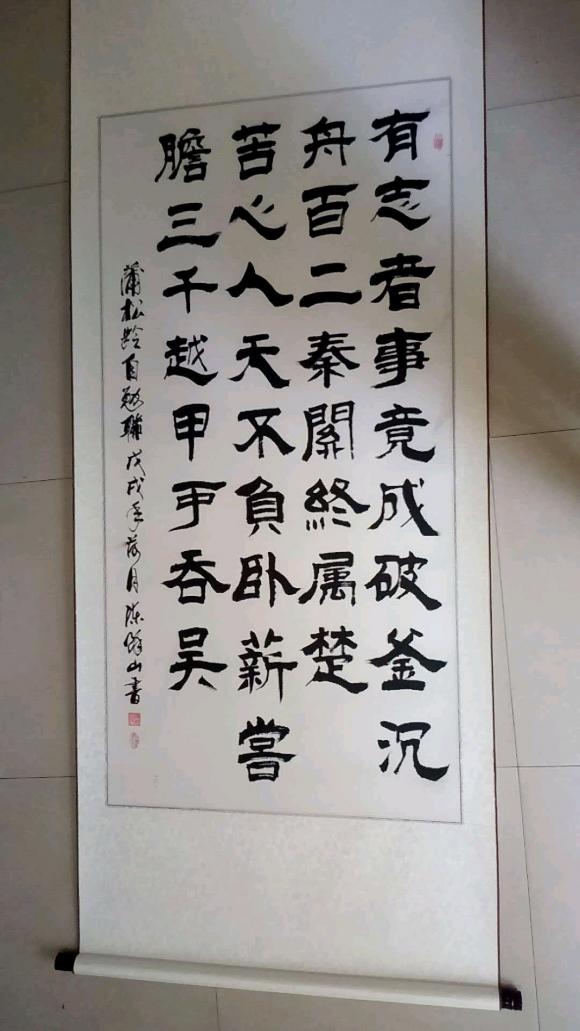 有志者事竟成破釜沉
舟百二秦關終属楚
苦心人天不負卧薪嘗
膽三千越甲吞吴
蒲松龄自勉聯戊戌年月陈山書